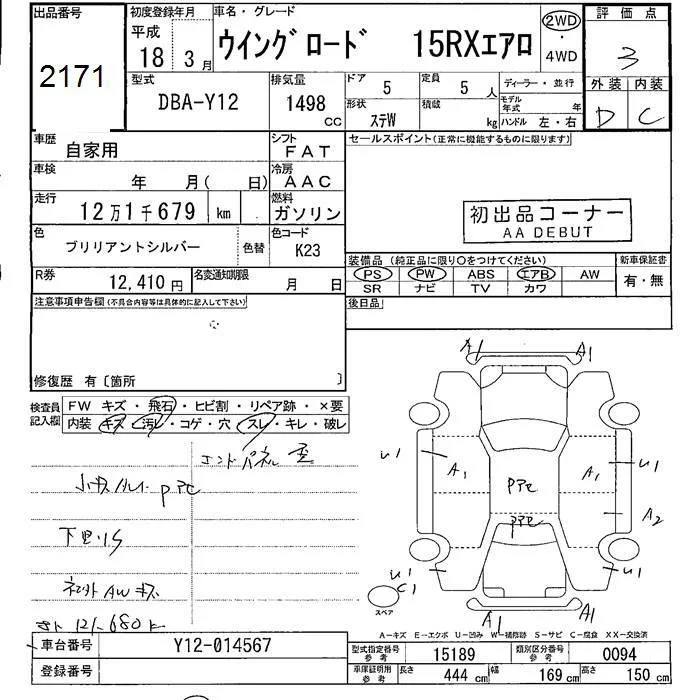 出品番号
2171
初度登録年月
平成
18 3月
車名・グレード
ウイングロード 15RXエアロ
2WD
・
4WD
評価点
3
外装 内装
D C
型式
DBA-Y12
排気量
1498
CC
ドア
5
定員
5 人
ディーラー・並行
形状
ステW
積載
kg
モデル年式 年
ハンドル 左・右
車歴
自家用
シフト
FAT
セールスポイント(正常に機能するものに限ります)
車検
年 月( 日)
冷房
AAC
走行
12万1千679 km
燃料
ガソリン
初出品コーナー
AA DEBUT
色
ブリリアントシルバー
色替
色コード
K23
装備品(純正品に限り○をつけてください)
新車保証書
PS PW ABS エアB AW
SR ナビ TV カワ
有・無
R券
12,410円
名変通知期限
月 日
後日品
注意事項申告欄(不具合内容等は具体的に記入して下さい)
修復歴 有〔箇所 〕
検査員記入欄
FW キズ・飛石・ヒビ割・リペア跡・×要
内装 キズ・汚レ・コゲ・穴・スレ・キレ・破レ
エンドパネル
PTe
下廻りS
AWキズ
121,680k
A1 A1
U1 A1 PTe A1 U1
PTe A2
U1
C1 U1
スペア
A1 A1
A-キズ E-エクボ U-凹み W-補修跡 S-サビ C-腐食 XX-交換済
車台番号
Y12-014567
型式指定番号
参考
15189
類別区分番号
参考
0094
登録番号
車庫証明用
参考
長さ 444 cm
幅 169 cm
高さ 150 cm